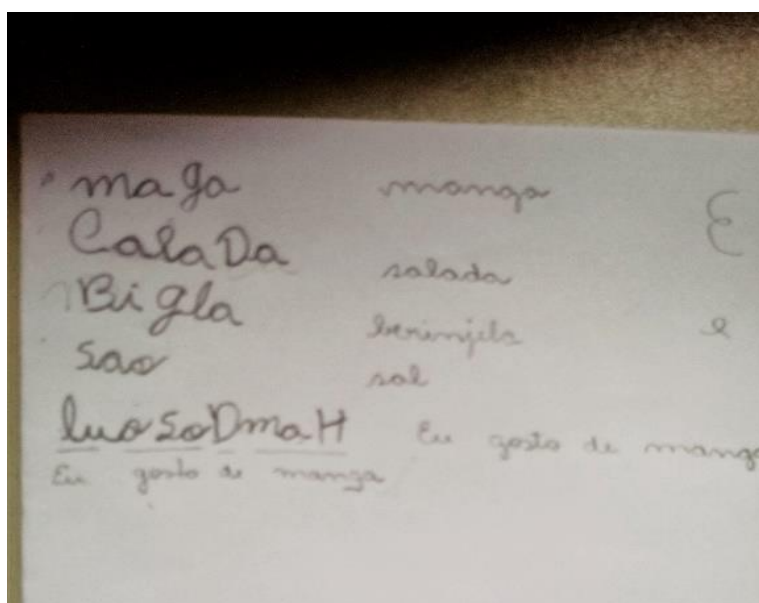 maga manga
CalaDa salada
Bigla berinjela
sao sal
luosoDmaH Eu gosto de manga
Eu gosto de manga